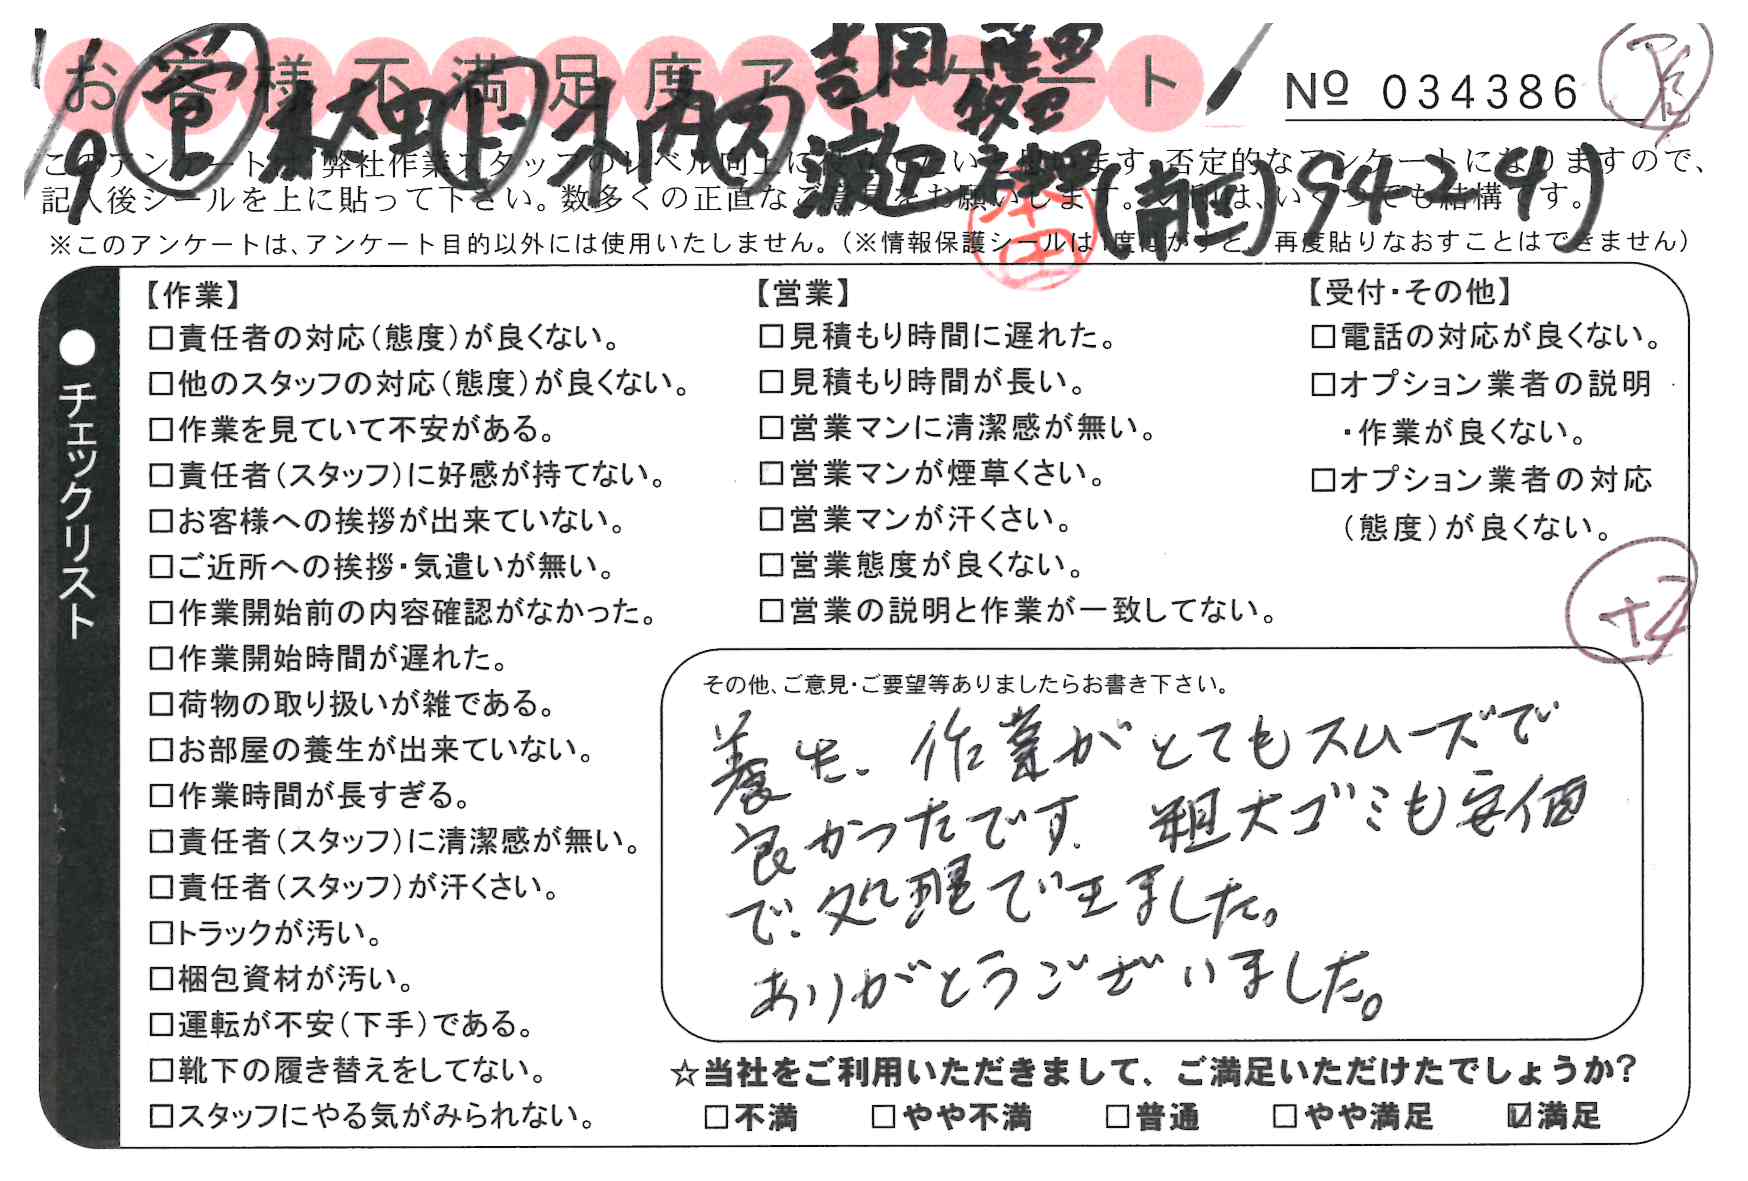 お客様不満足度アンケート
Nº 034386
1/9
このアンケートは、弊社作業スタッフのレベル向上に役立てたいと思います。否定的なアンケートになりますので、
記入後シールを上に貼って下さい。数多くの正直なご意見をお願いします。
※このアンケートは、アンケート目的以外には使用いたしません。（※情報保護シールは1度はがすと、再度貼りなおすことはできません）
本田
●チェックリスト
【作業】
□責任者の対応（態度）が良くない。
□他のスタッフの対応（態度）が良くない。
□作業を見ていて不安がある。
□責任者（スタッフ）に好感が持てない。
□お客様への挨拶が出来ていない。
□ご近所への挨拶・気遣いが無い。
□作業開始前の内容確認がなかった。
□作業開始時間が遅れた。
□荷物の取り扱いが雑である。
□お部屋の養生が出来ていない。
□作業時間が長すぎる。
□責任者（スタッフ）に清潔感が無い。
□責任者（スタッフ）が汗くさい。
□トラックが汚い。
□梱包資材が汚い。
□運転が不安（下手）である。
□靴下の履き替えをしてない。
□スタッフにやる気がみられない。
【営業】
□見積もり時間に遅れた。
□見積もり時間が長い。
□営業マンに清潔感が無い。
□営業マンが煙草くさい。
□営業マンが汗くさい。
□営業態度が良くない。
□営業の説明と作業が一致してない。
【受付・その他】
□電話の対応が良くない。
□オプション業者の説明
・作業が良くない。
□オプション業者の対応
（態度）が良くない。
+4
その他、ご意見・ご要望等ありましたらお書き下さい。
養生、作業がとてもスムーズで
良かったです。粗大ゴミも安価
で、処理できました。
ありがとうございました。
☆当社をご利用いただきまして、ご満足いただけたでしょうか？
□不満 □やや不満 □普通 □やや満足 ☑満足